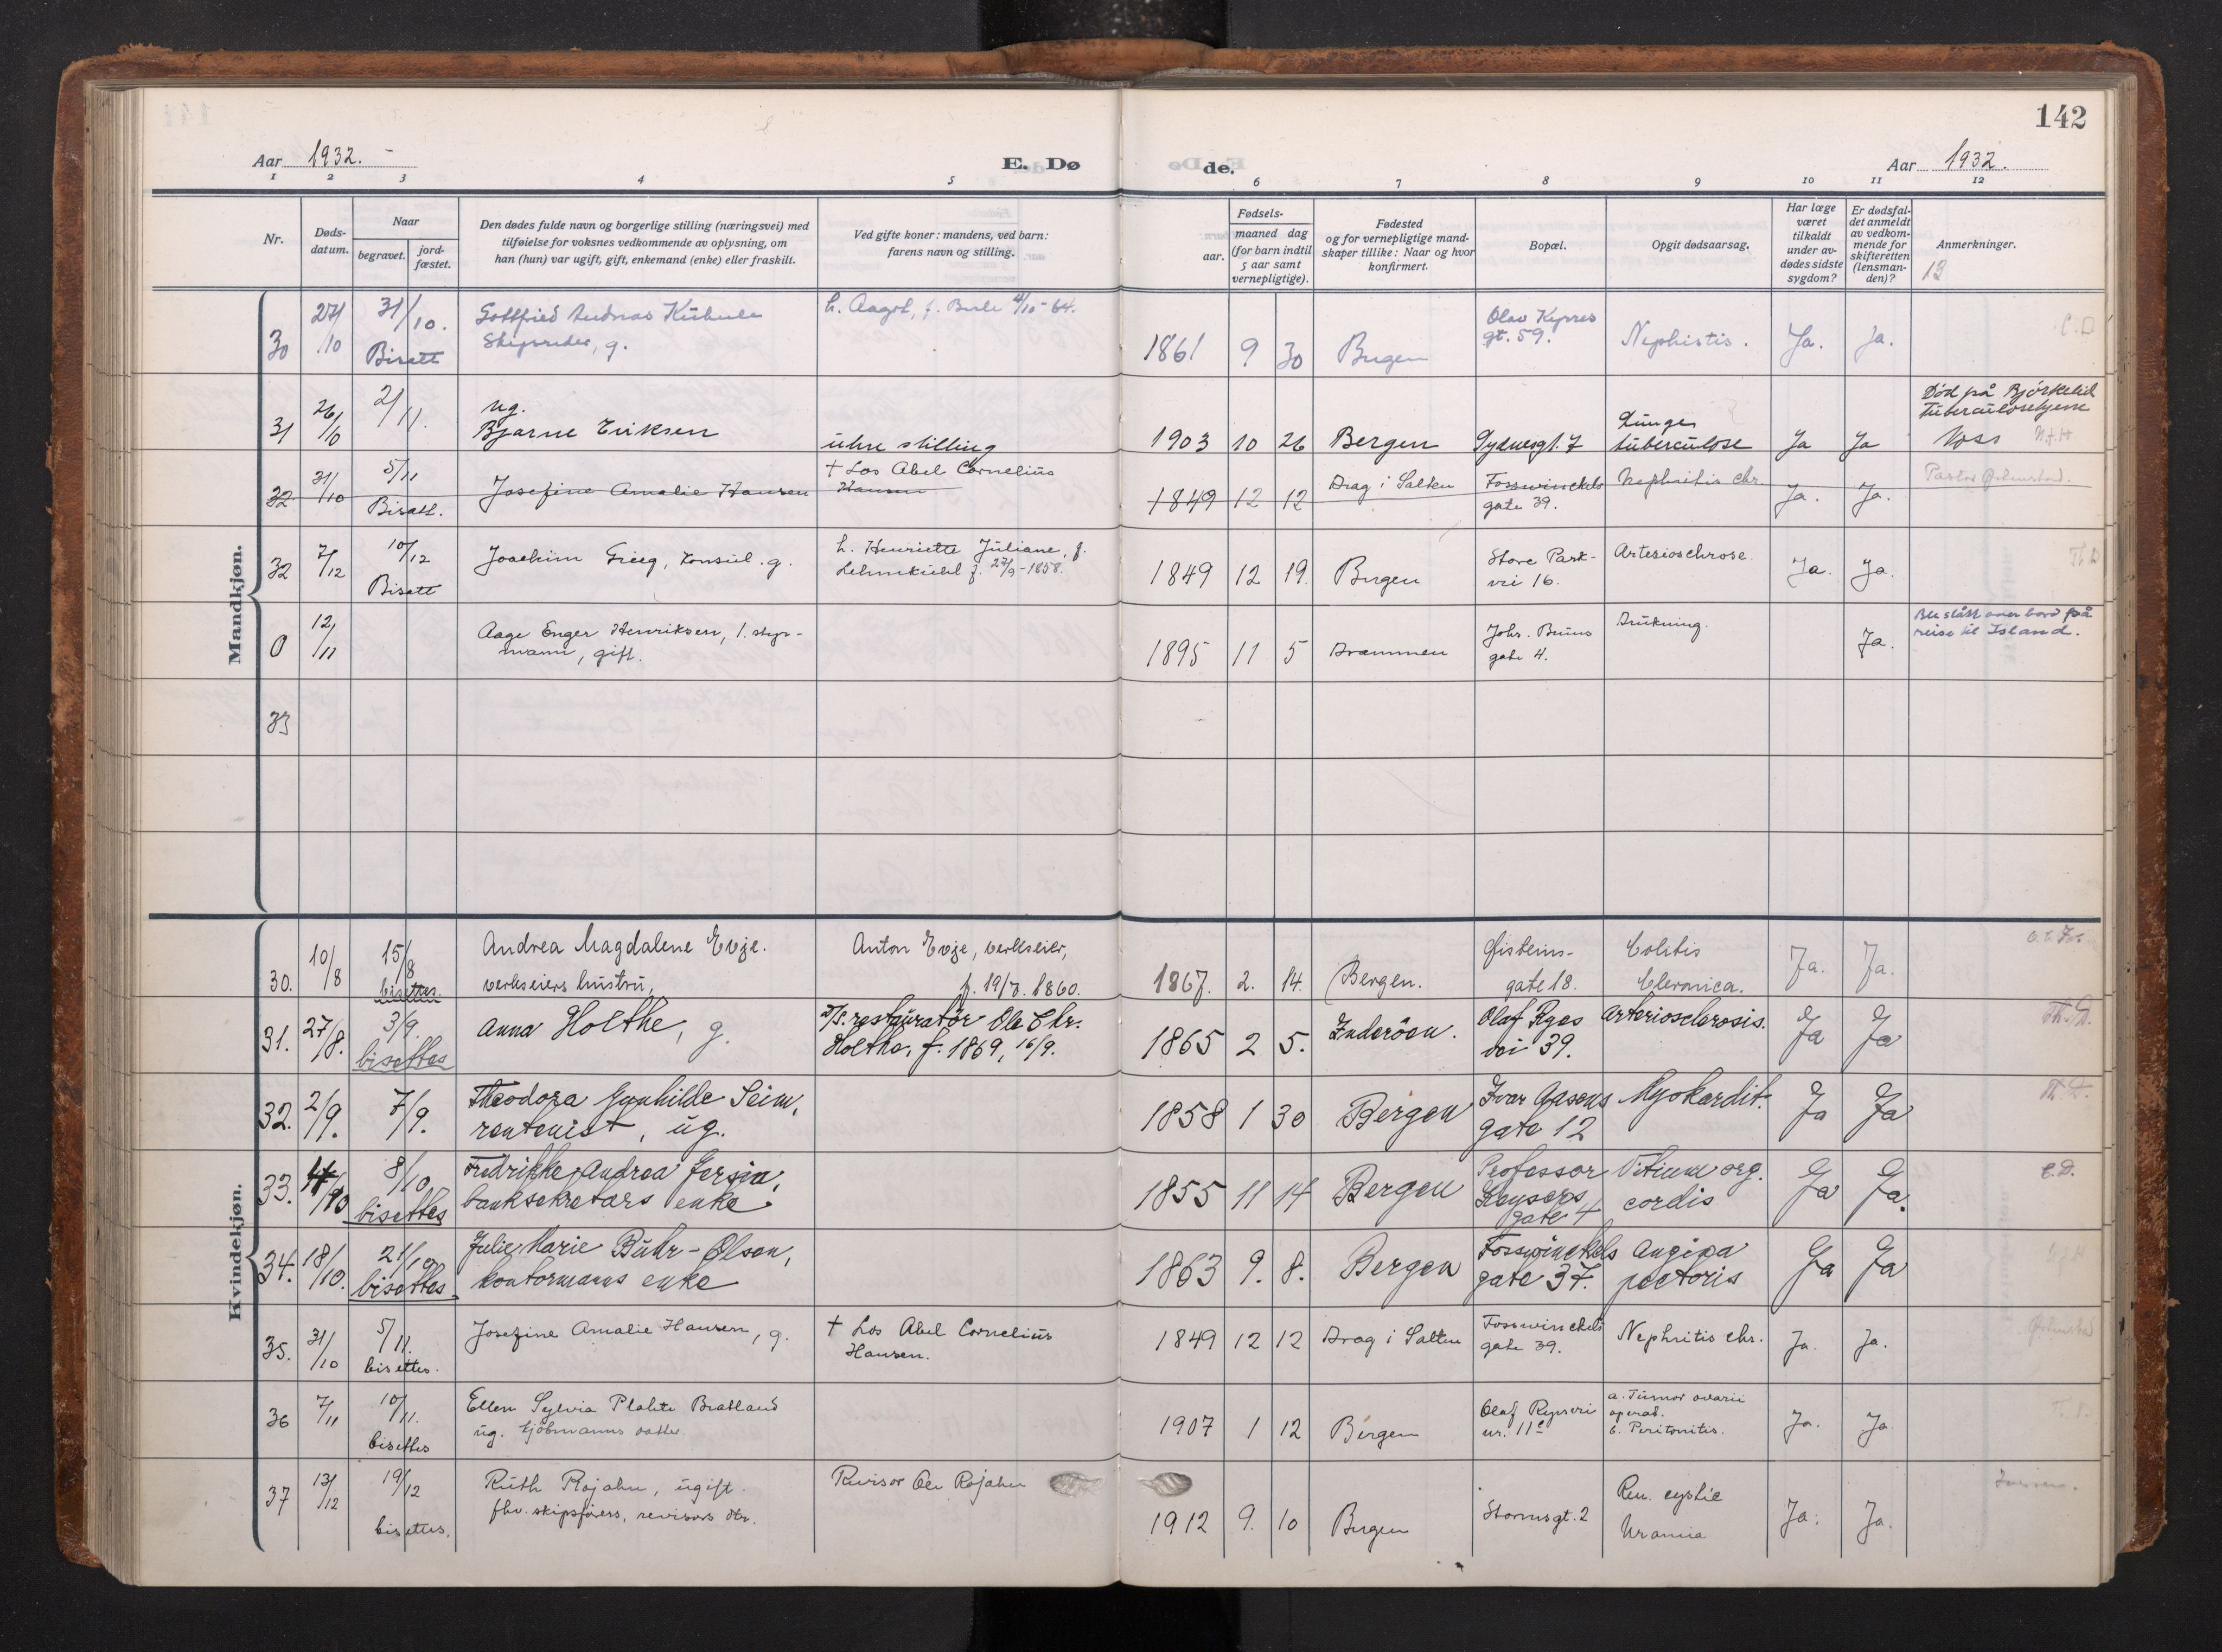 142
Aar 1932.
E. Dø
de.
Aar 1932.
1 2 3 4 5 6 7 8 9 10 11 12
Nr.
Døds-
datum.
Naar
begravet.
jord-
fæstet.
Den dødes fulde navn og borgerlige stilling (næringsvei) med
tilføielse for voksnes vedkommende av oplysning, om
han (hun) var ugift, gift, enkemand (enke) eller fraskilt.
Ved gifte koner: mandens, ved barn:
farens navn og stilling.
Fødsels-
aar.
maaned dag
(for barn indtil
5 aar samt
vernepligtige).
Fødested
og for vernepligtige mand-
skaper tillike: Naar og hvor
konfirmert.
Bopæl.
Opgit dødsaarsag.
Har læge
været
tilkaldt
under av-
dødes sidste
sygdom?
Er dødsfal-
det anmeldt
av vedkom-
mende for
skifteretten
(lensman-
den)?
Anmerkninger.
13
Mandkjøn.
30 27/10 31/10. Bisatt
Gottfried Andreas Kühnle
Skipsreder, g.
h. Aagot, f. 4/10-64.
1861 9 30 Bergen
Olav Kyrres
gt. 59.
Nephistis. Ja. Ja.
C.D
31 26/10 2/11.
ug.
Bjarne Eriksen
uten stilling
1903 10 26 Bergen Sydnesgt. 7
Lunge
tuberculose Ja Ja
Død på Bjørkelid
tuberculosehjem
Voss
32 31/10 5/11 Bisatt.
Josefine Amalie Hansen
† Los Abel Cornelius
Hansen
1849 12 12 Drag i Salten
Fosswinckels
gate 39.
Nephritis chr. Ja. Ja.
Pastor
32 7/12 10/12 Bisatt
Joachim Grieg, konsul. g.
h. Henriette Juliane, f.
Lehmkuhl f. 27/9-1858.
1849 12 19. Bergen
Store Park-
vei 16.
Arteriosclrose. Ja. Ja.
Th D
0 12/11
Aage Enger Henriksen, 1. styr-
mann, gift.
1895 11 5 Drammen
Johs. Bruns
gate 4.
Drukning. Ja.
Ble slått over bord på
reise til Island.
33
Kvindekjøn.
30. 10/8 15/8 bisettes.
Andrea Magdalene Evje.
verkseiers hustru,
Anton Evje, verkseier,
f. 19/7. 1860.
1867. 2. 14. Bergen.
Øisteins-
gate 18.
Colitis
Cleronica. Ja. Ja.
31. 27/8. 3/9. bisettes
Anna Holthe, g.
D/S. restauratør Ole Chr.
Holthe, f. 1869, 16/9.
1865 2 5. Inderöen.
Olaf Ryes
vei 39.
Arteriosclerosis. Ja Ja
Th. D.
32. 2/9. 7/9.
Theodora Gunhilde Seim,
rentenist, ug.
1858 1 30 Bergen
Ivar Aasens
gate 12
Myokardit. Ja Ja
Th. D.
33. 4/10 8/10. bisettes
Fredrikke Andrea Jersin,
banksekretærs enke
1855 11 14 Bergen
Professor
Keysers
gate 4
Vitium org.
cordis Ja Ja.
C.D.
34. 18/10. 21/10 bisettes.
Julie Marie Buhr-Olsen,
kontormanns enke
1863 9. 8. Bergen
Fosswinckels
gate 37.
Angina
pectoris Ja Ja
35. 31/10 5/11. bisettes.
Josefine Amalie Hansen, g.
† Los Abel Cornelius
Hansen.
1849 12 12 Drag i Salten
Fosswinckels
gate 39.
Nephritis chr. Ja. Ja.
36 7/11 10/11. bisettes
Ellen Sylvia Plahte Bratland
ug. kjöbmanns datter
1907 1 12 Bergen
Olaf Ryesvei
nr. 11c
a. Tumor ovarii
operat.
b. Peritonitis. Ja. Ja
37 13/12 19/12 bisettes.
Ruth Rojahn, ugift.
fhv. skipsførers, revisors dtr.
Revisor Ole Rojahn
1912 9. 10 Bergen
Stormsgt. 2
Ren. cystic
Uramia Ja. Ja.